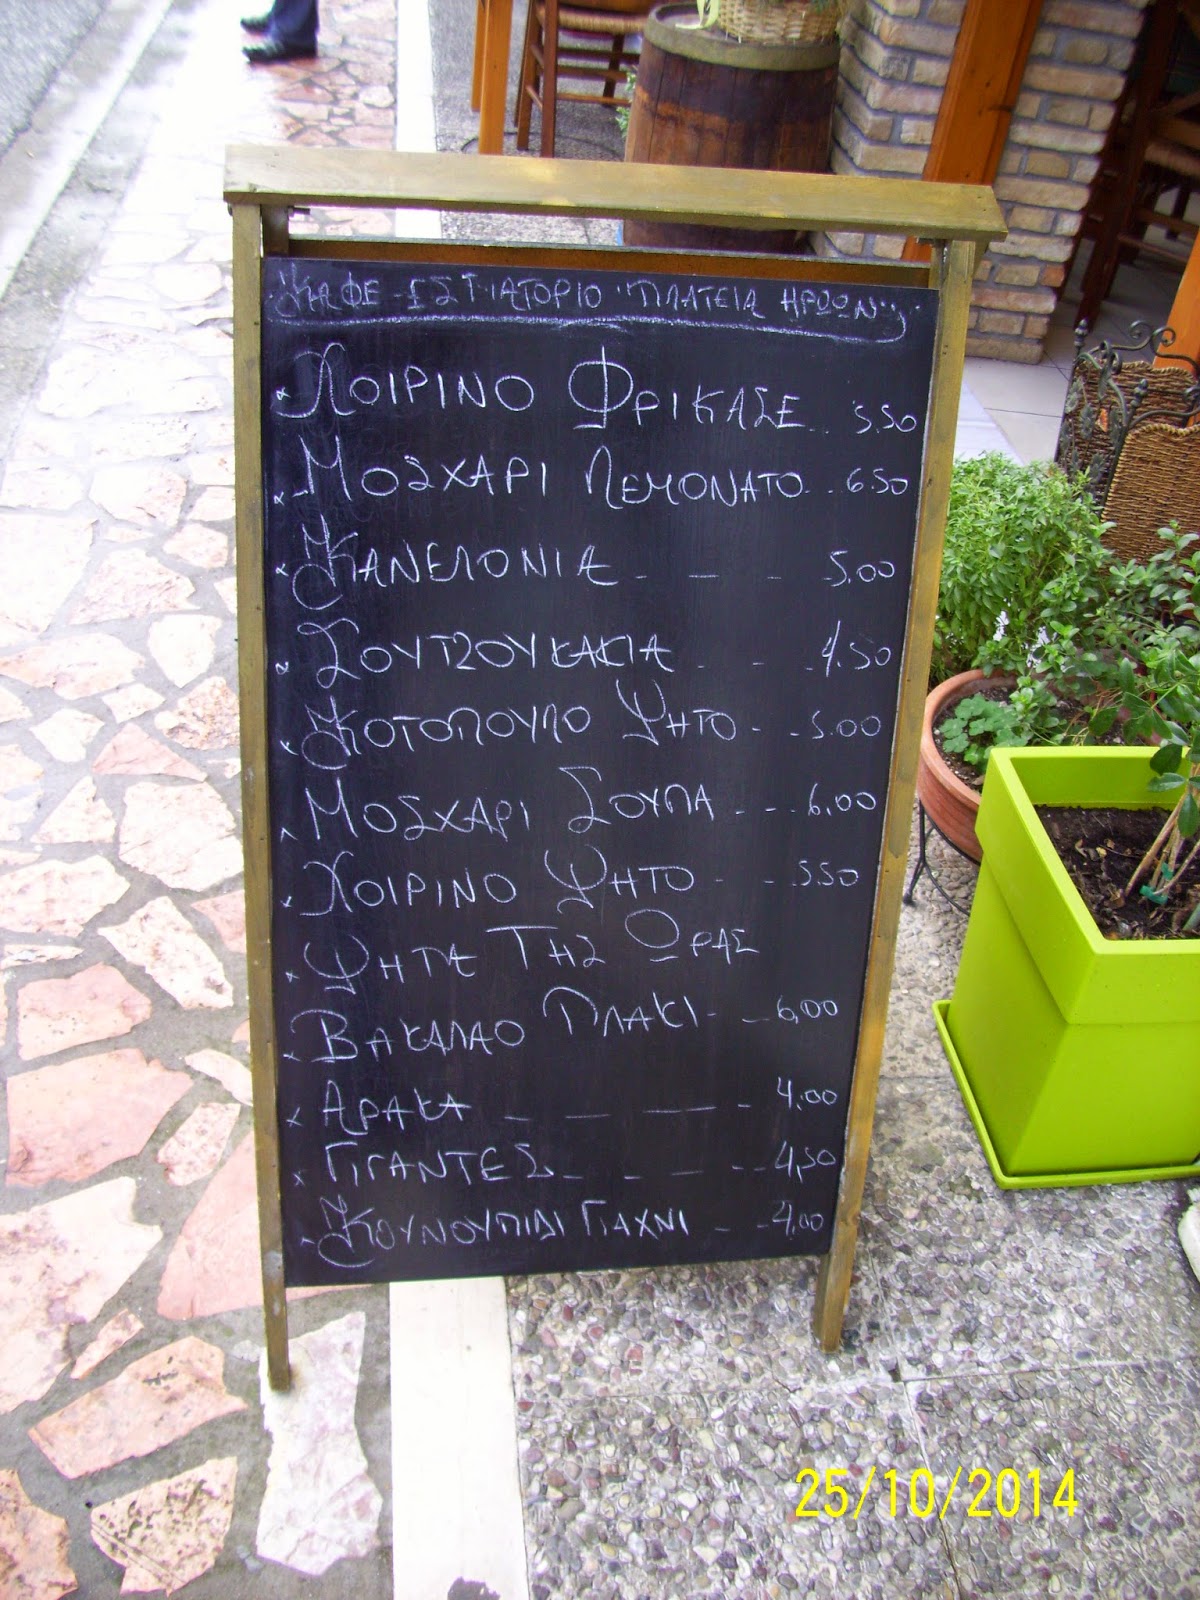 ΚΑΦΕ - ΕΣΤΙΑΤΟΡΙΟ "ΠΛΑΤΕΙΑ ΗΡΩΩΝ"
x ΧΟΙΡΙΝΟ ΦΡΙΚΑΣΕ.. 5.50
x ΜΟΣΧΑΡΙ ΛΕΜΟΝΑΤΟ... 6.50
x ΚΑΝΕΛΟΝΙΑ - - - - 5,00
x ΣΟΥΤΖΟΥΚΑΚΙΑ - - - 4.50
x ΚΟΤΟΠΟΥΛΟ ΨΗΤΟ - - - 5.00
x ΜΟΣΧΑΡΙ ΣΟΥΠΑ - - - 6,00
x ΧΟΙΡΙΝΟ ΨΗΤΟ - - - 5.50
x ΨΗΤΑ ΤΗΣ ΩΡΑΣ
x ΒΑΚΑΛΑΟ ΠΛΑΚΙ - - - 6,00
x ΑΡΑΚΑ - - - - 4.00
x ΓΙΓΑΝΤΕΣ - - - - - 4,50
- ΚΟΥΝΟΥΠΙΔΙ ΓΙΑΧΝΙ - - 4,00
25/10/2014